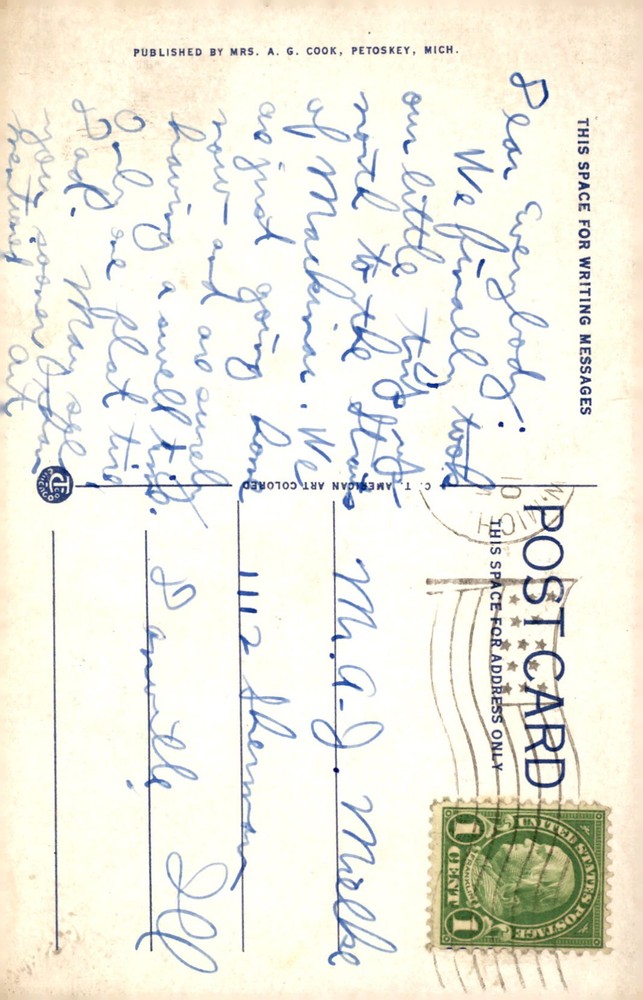 PUBLISHED BY MRS. A. G. COOK, PETOSKEY, MICH.
THIS SPACE FOR WRITING MESSAGES
Dear Everybody:
We finally took
our little trip
north to the Straits
of Mackinac. We
as just going home
now and are surely
having a swell time.
Only one flat tire
Dad. May see
you sooner than
C. T. AMERICAN ART COLORED
POST CARD
THIS SPACE FOR ADDRESS ONLY
MICH
10
UNITED STATES POSTAGE
FRANKLIN
1 CENT 1
M. A. J. Mielke
1112 Sherman
Danville Ill